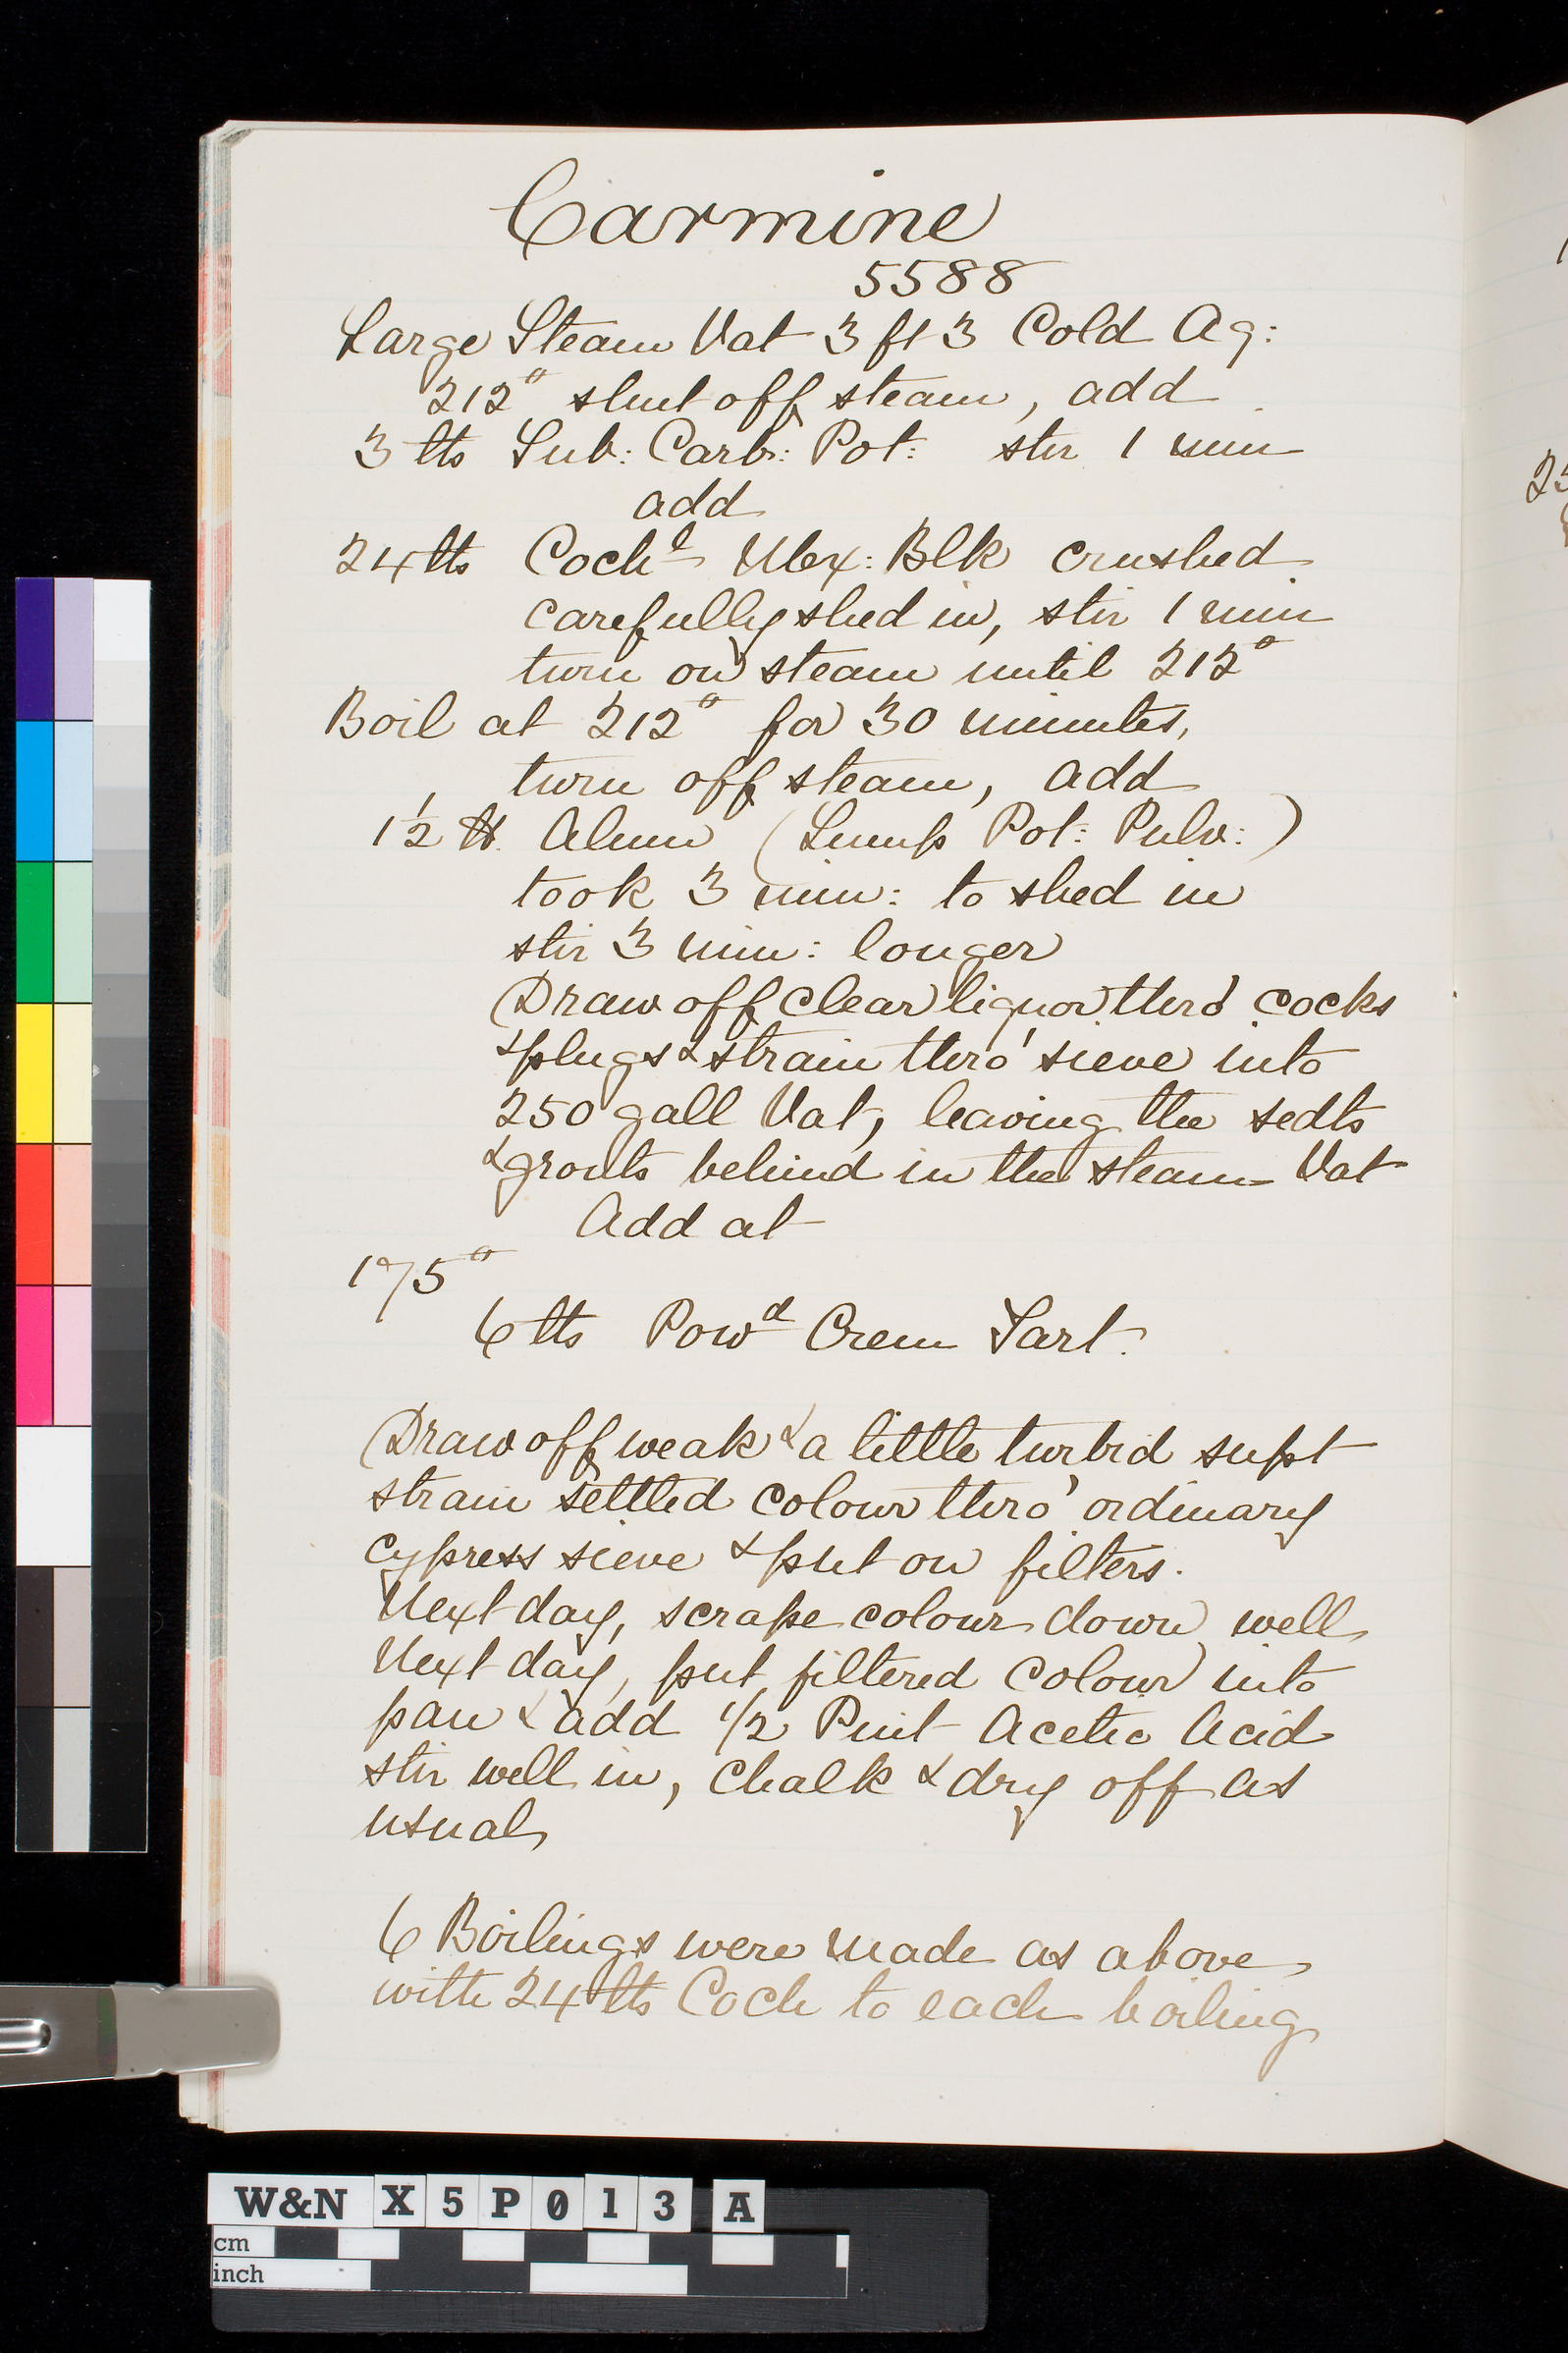 Carmine
5588
Large Steam Vat 3 ft 3 Cold Aq:
212° shut off steam, add
3 lbs Sub: Carb: Pot: stir 1 min
add
24 lbs Cochl Mex: Blk crushed
carefully shed in, stir 1 min
turn on steam until 212°
Boil at 212° for 30 minutes,
turn off steam, add
1½ lb. Alum (Lump Pot: Pulv:)
took 3 min: to shed in
stir 3 min: longer
Draw off clear liquor thro' cocks
& plugs & strain thro' sieve into
250 gall Vat, leaving the sedts
& grouts behind in the steam Vat
Add at
175°
6 lbs Powd Crem Tart.
Draw off weak & a little turbid supt
strain settled colour thro' ordinary
cypress sieve & put on filters.
Next day, scrape colour down well
Next day, put filtered colour into
pan & add 1/2 Pint Acetic Acid
stir well in, chalk & dry off as
usual
6 Boilings were made as above
with 24 lbs Coch to each boiling
25
W&N X5P013 A
cm
inch